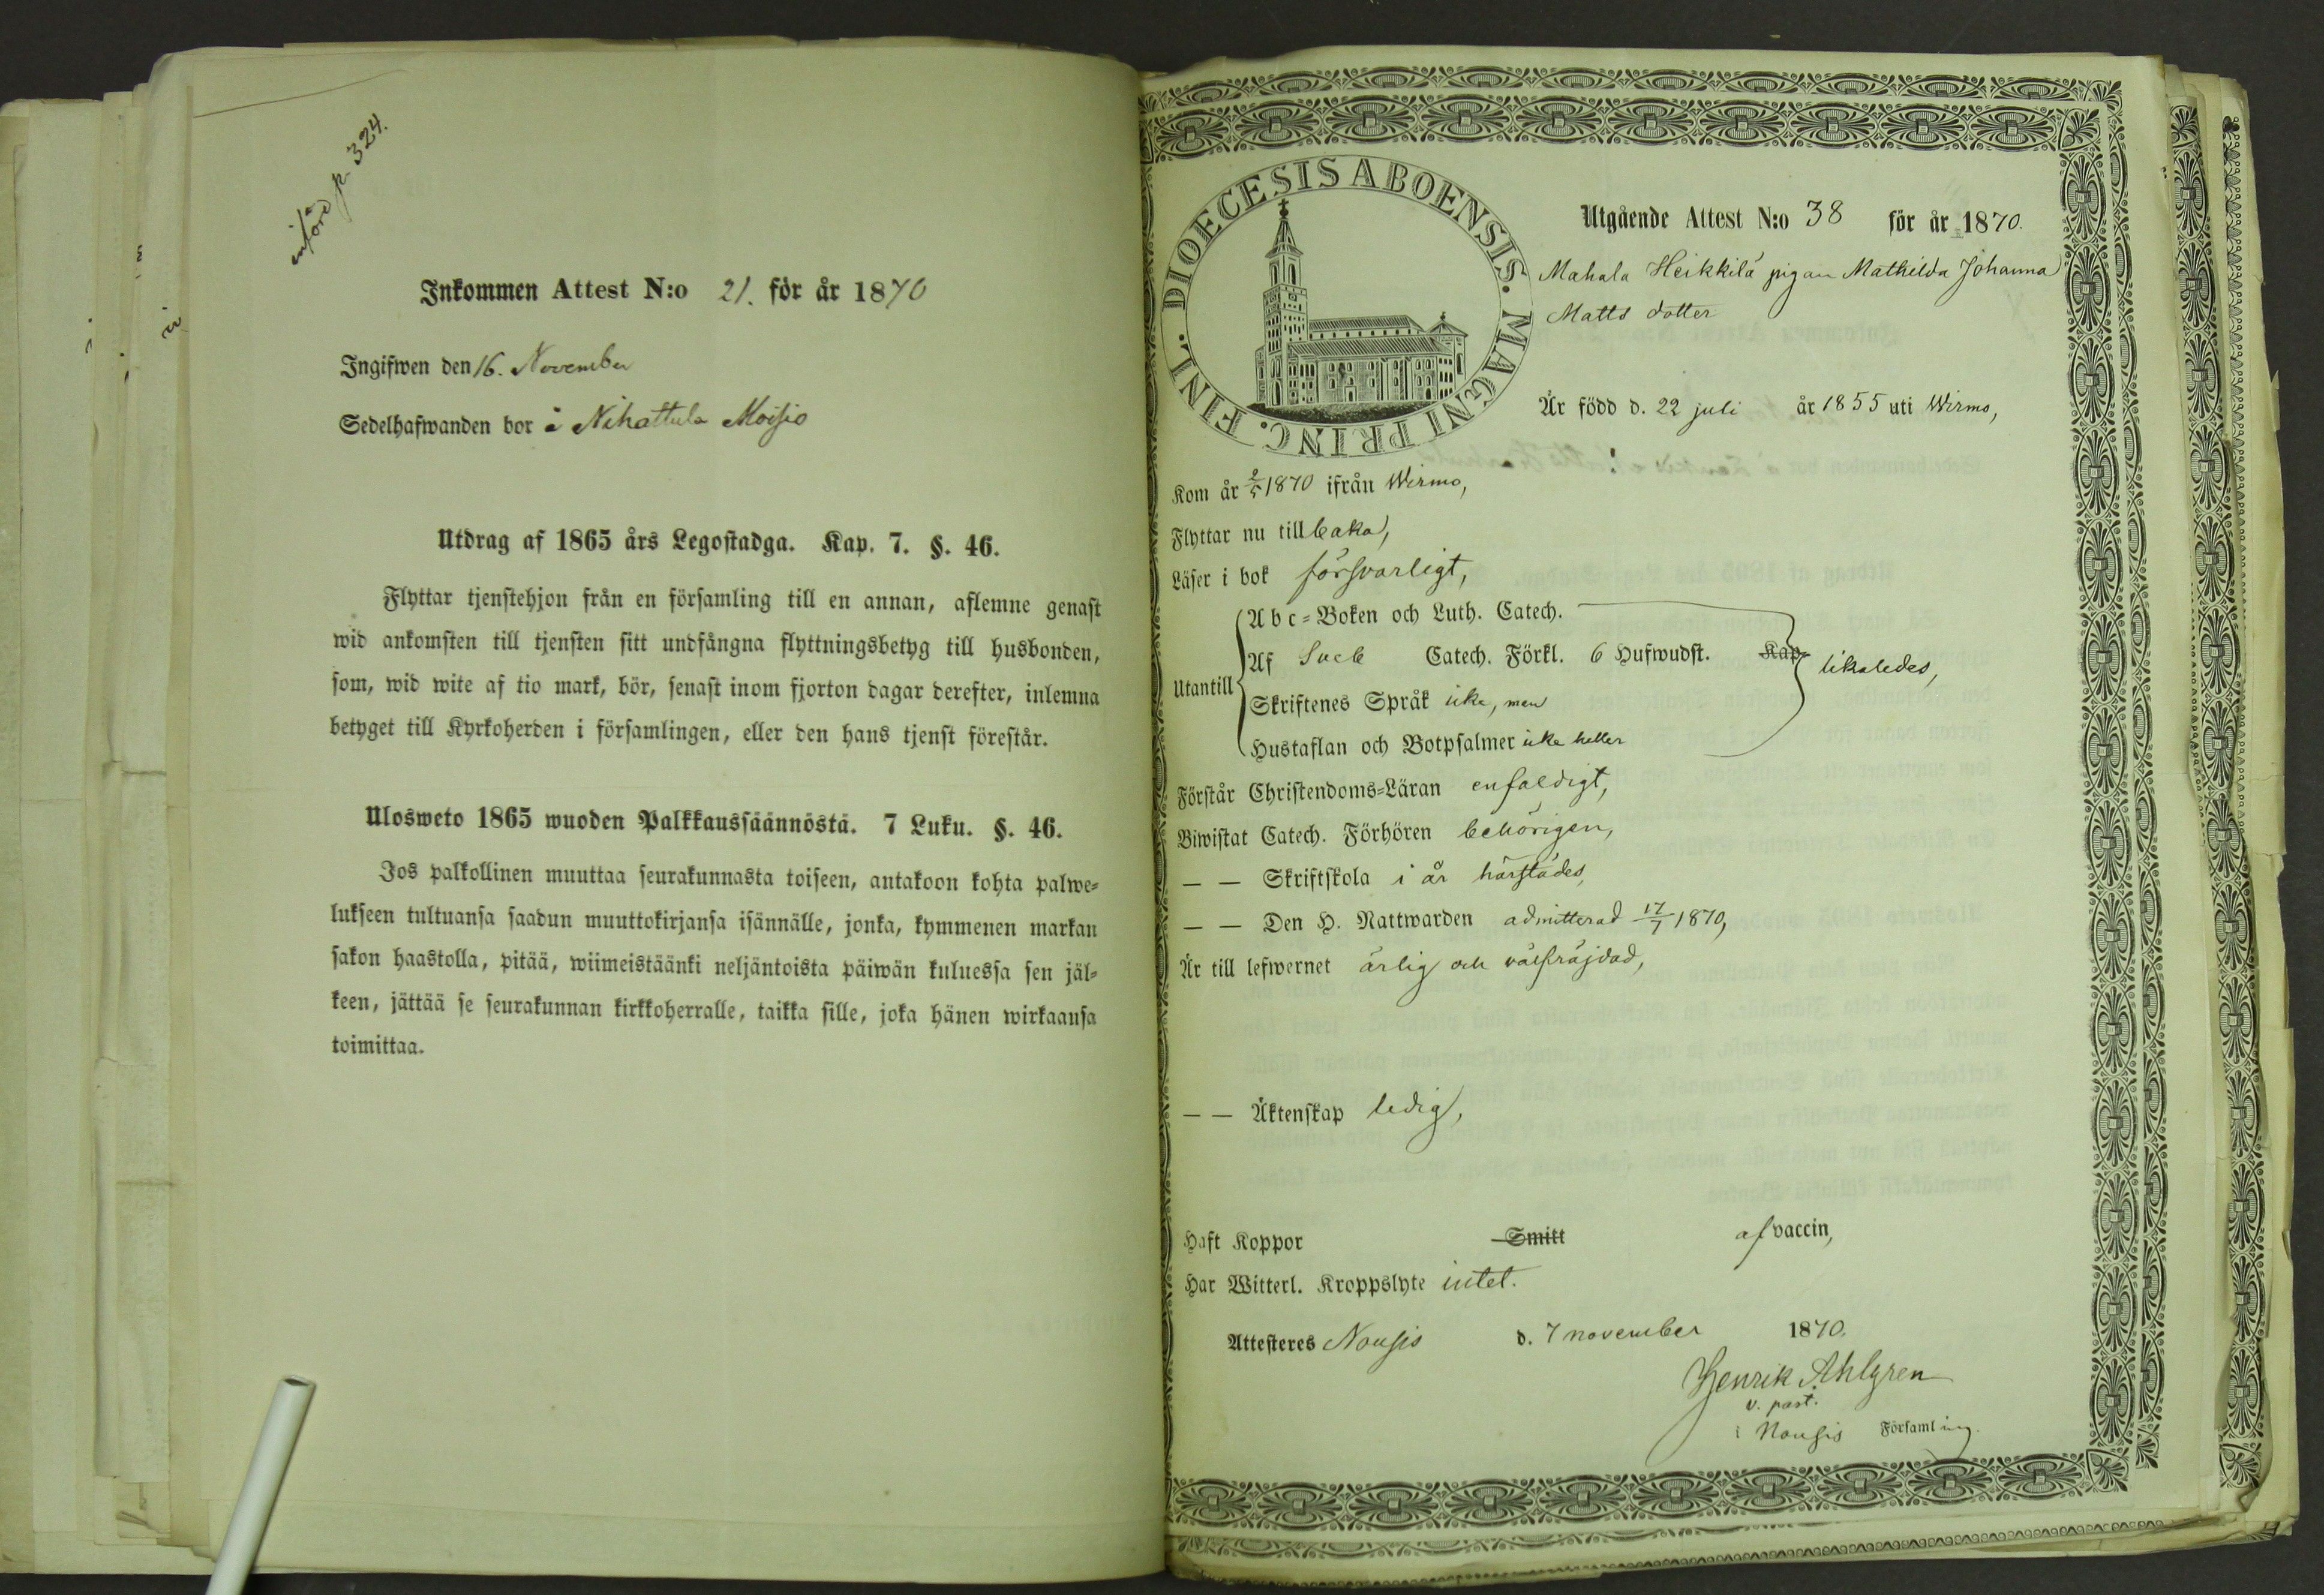 införd p. 324.
Inkommen Attest N:o 21. för år 1870
Ingifwen den 16. November
Sedelhafwanden bor å Nihattula Moisio
Utdrag af 1865 års Legostadga. Kap. 7. §. 46.
Flyttar tjenstehjon från en församling till en annan, aflemne genast
wid ankomsten till tjensten sitt undfångna flyttningsbetyg till husbonden,
som, wid wite af tio mark, bör, senast inom fjorton dagar derefter, inlemna
betyget till Kyrkoherden i församlingen, eller den hans tjenst förestår.
Ulosweto 1865 wuoden Palkkaussäännöstä. 7 Luku. §. 46.
Jos palkollinen muuttaa seurakunnasta toiseen, antakoon kohta palwe=
lukseen tultuansa saadun muuttokirjansa isännälle, jonka, kymmenen markan
sakon haastolla, pitää, wiimeistäänki neljäntoista päiwän kuluessa sen jäl=
keen, jättää se seurakunnan kirkkoherralle, taikka sille, joka hänen wirkaansa
toimittaa.
DIOECESIS ABOENSIS. MAGNI PRINC. FINL.
Utgående Attest N:o 38 för år 1870.
Mahala Heikkilä pigan Mathilda Johanna
Matts dotter
Är född d. 22 juli år 1855 uti Wirmo,
Kom år 2/5 1870 ifrån Wirmo,
Flyttar nu tillbaka,
Läser i bok försvarligt,
Utantill
Abc=Boken och Luth. Catech.
Af Sveb Catech. Förkl. 6 Hufwudst. Kap. likaledes,
Skriftenes Språk icke, men
Hustaflan och Botpsalmer icke heller
Förstår Christendoms=Läran enfaldigt,
Biwistat Catech. Förhören behörigen,
— — Skriftskola i år härstädes,
— — Den H. Nattwarden admitterad 17/7 1870,
Är till lefwernet ärlig och välfräjdad,
— — Äktenskap ledig,
Haft Koppor Smitt af vaccin,
Har Witterl. Kroppslyte intet.
Attesteres Nousis d. 7 november 1870.
Henrik Ahlgren
v. past.
i Nousis Församling.